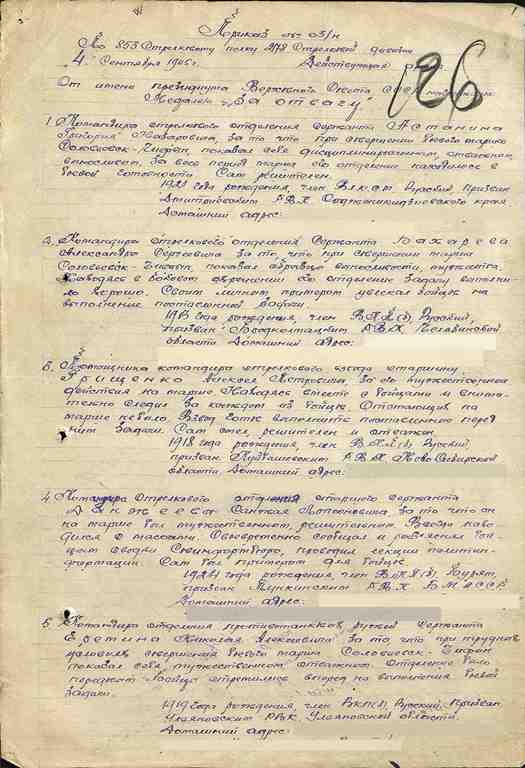 Приказ № 03/н
По 853 Стрелковому полку 278 Стрелковой дивизии
"4" Сентября 1945 г. Действующая
186
От имени президиума Верховного Совета СССР
Медалью "За отвагу"
1. Командира стрелкового отделения сержанта Астанина
Григория за то, что при совершении боевого марша
Соловьевск- показал себя дисциплинированным, отважным,
выносливым. За весь период марша его отделение находилось в
боевой готовности. Сам решителен.
1921 года рождения, член ВЛКСМ, Русский, Призван
РВК Орджоникидзевского края
Домашний адрес:
2. Командира Стрелкового отделения Сержанта Бахарева
Александра Сергеевича за то, что при совершении марша
Соловьевск- показал образцы выносливости, мужества.
Находясь в боевом его отделение задачу выполни-
ло хорошо. Своим личным примером увлекал бойцов на
выполнение поставленной задачи.
года рождения, член ВКП(б), Русский,
призван РВК Челябинской
области Домашний адрес:
3. Помощника командира стрелкового взвода старшину
Грищенко Алексея Петровича, за его мужественные
действия на марше. Находясь вместе с бойцами и внима-
тельно следил за каждым из бойцов. Отстающих на
марше не было. Взвод выполнить поставленную перед
ним задачу. Сам смел, решителен и отважен.
1918 года рождения, член ВКП(б), Русский,
призван РВК Ново Сибирской
области, Домашний адрес:
4. Командира Стрелкового отделения старшего сержанта
за то, что он
на марше был мужественным, решительным. Всегда нахо-
дился с массами. Своевременно сообщал и разъяснял бой-
цам сводки Совинформбюро, проводил секции политин-
формации. Сам был примером для бойцов.
года рождения, член ВКП(б), Бурят,
призван РВК БМАССР
Домашний адрес:
5. Командира отделения противотанковых ружей Сержанта
Николая Алексеевича за то, что при трудных
условиях совершения боевого марша Соловьевск-
показал себя мужественным отважным. Отделение было
Бойцы стремились вперед на выполнение боевой
задачи.
1919 года рождения, член ВКП(б), Русский, Призван
Ульяновским РВК Ульяновской области.
Домашний адрес: